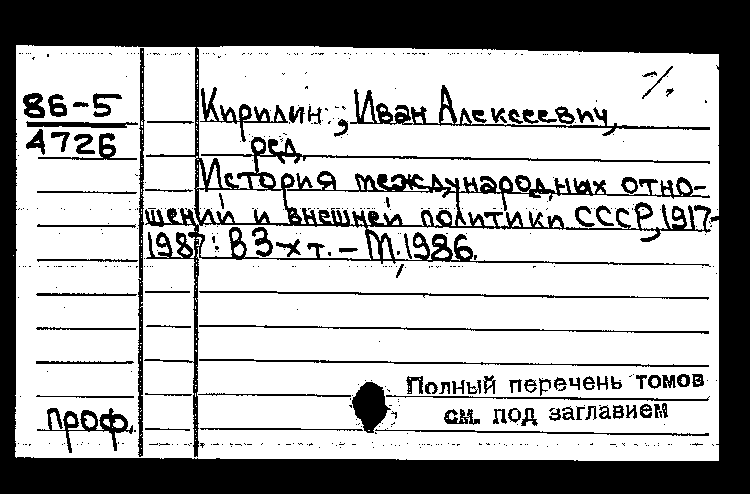 86-5
4726
Кирилин, Иван Алексеевич,
ред.
История международных отно-
шений и внешней политики СССР, 1917-
1987: В 3-х т. – М., 1986.
Полный перечень томов
см. под заглавием
проф.